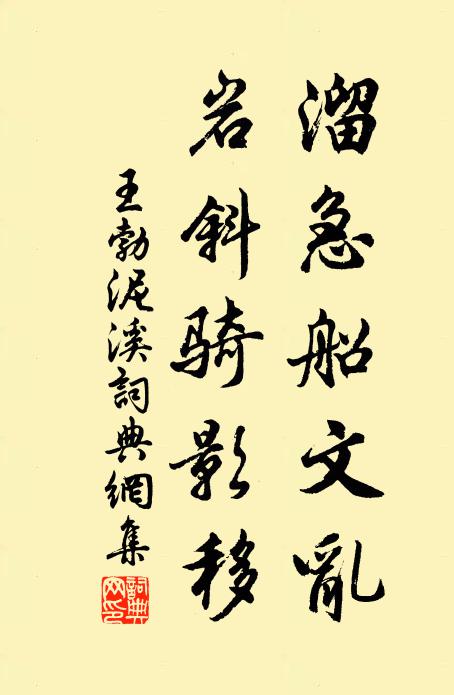 溜急船文亂
岩斜騎影移
王勃泥溪詞典網集
詞典网印